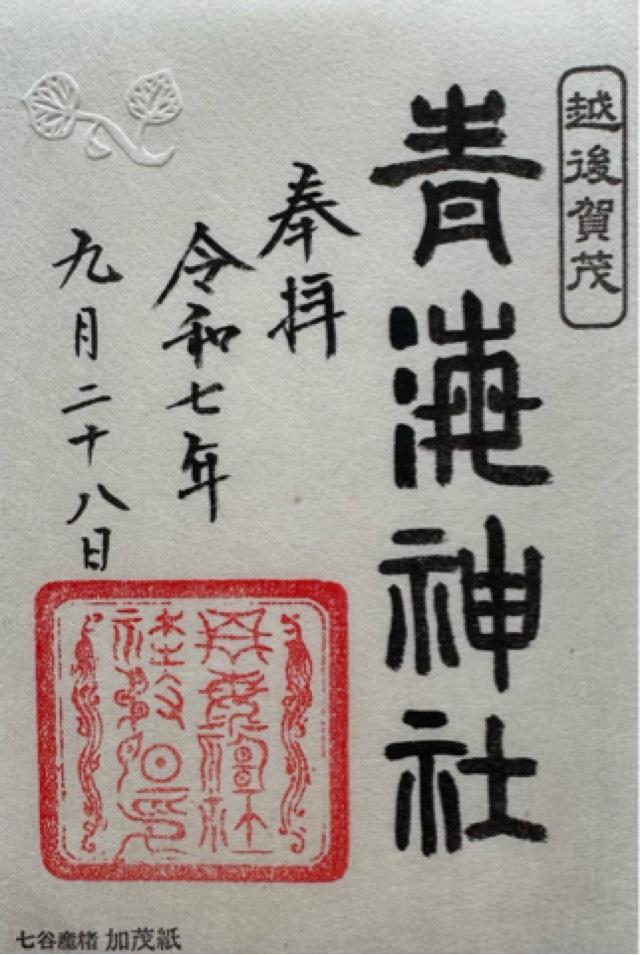 越後賀茂
青海神社
奉拝
令和七年
九月二十八日
七谷産楮 加茂紙